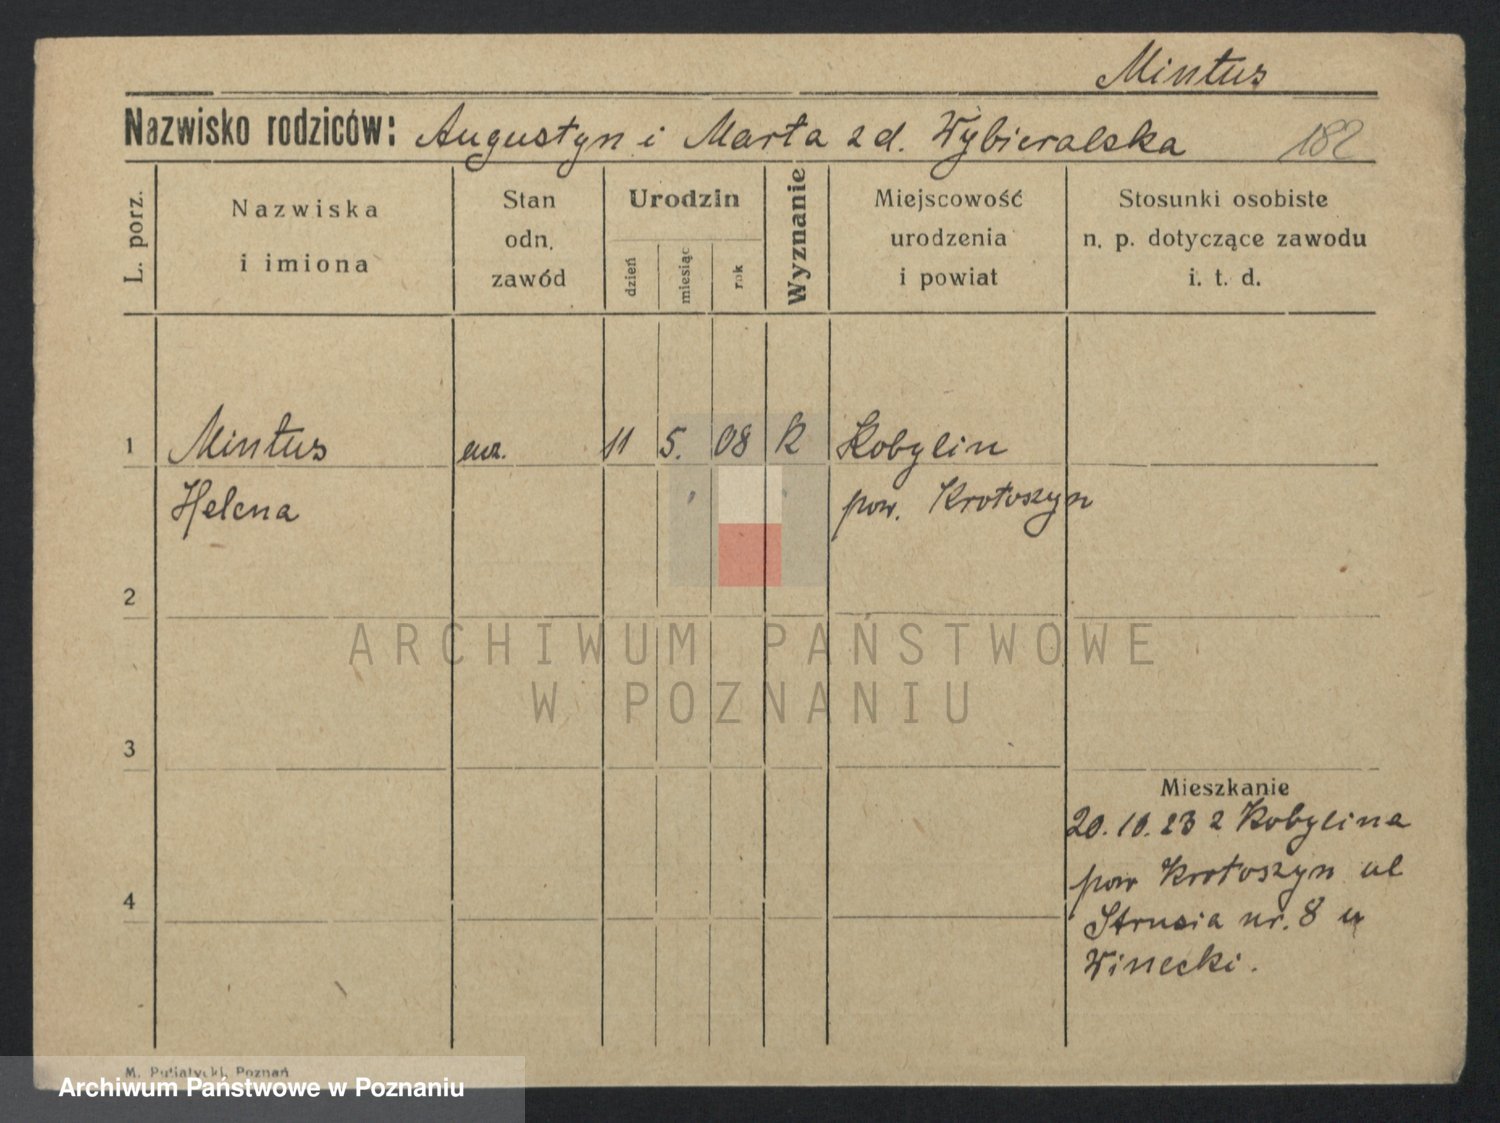 Mintus
Nazwisko rodziców: Augustyn i Marta z d. Wybieralska 182
L. porz.
Nazwiska
i imiona
Stan
odn.
zawód
Urodzin
dzień
miesiąc
rok
Wyznanie
Miejscowość
urodzenia
i powiat
Stosunki osobiste
n. p. dotyczące zawodu
i. t. d.
1 Mintus 11 5. 08 k Kobylin
Helena pow. Krotoszyn
2
ARCHIWUM PAŃSTWOWE
W POZNANIU
3
Mieszkanie
20. 10. 23 z Kobylina
pow Krotoszyn ul
4
Strusia nr. 8 u
Winecki.
M. Putiatycki, Poznań
Archiwum Państwowe w Poznaniu